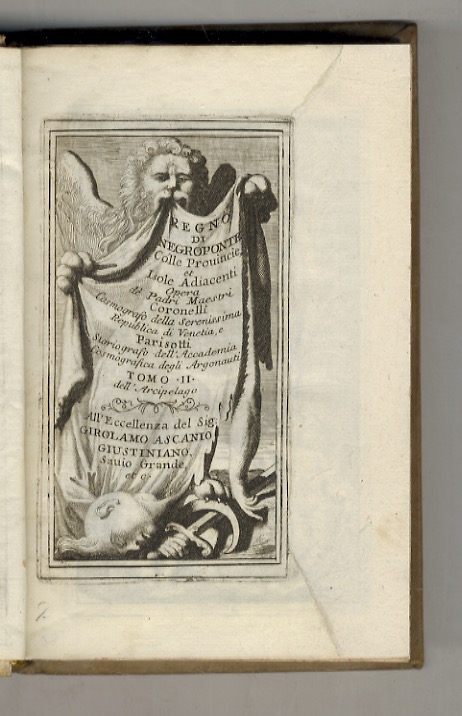 REGNO
DI
NEGROPONTE
Colle Prouincie,
et
Isole Adiacenti
Opera
de Padri Maestri
Coronelli
Cosmografo della Serenissima
Republica di Venetia, e
Parisotti
Storiografo dell'Accademia
Cosmografica degli Argonauti
TOMO · II ·
dell'Arcipelago
All'Eccellenza del Sig:
GIROLAMO ASCANIO
GIUSTINIANO,
Sauio Grande,
et c·